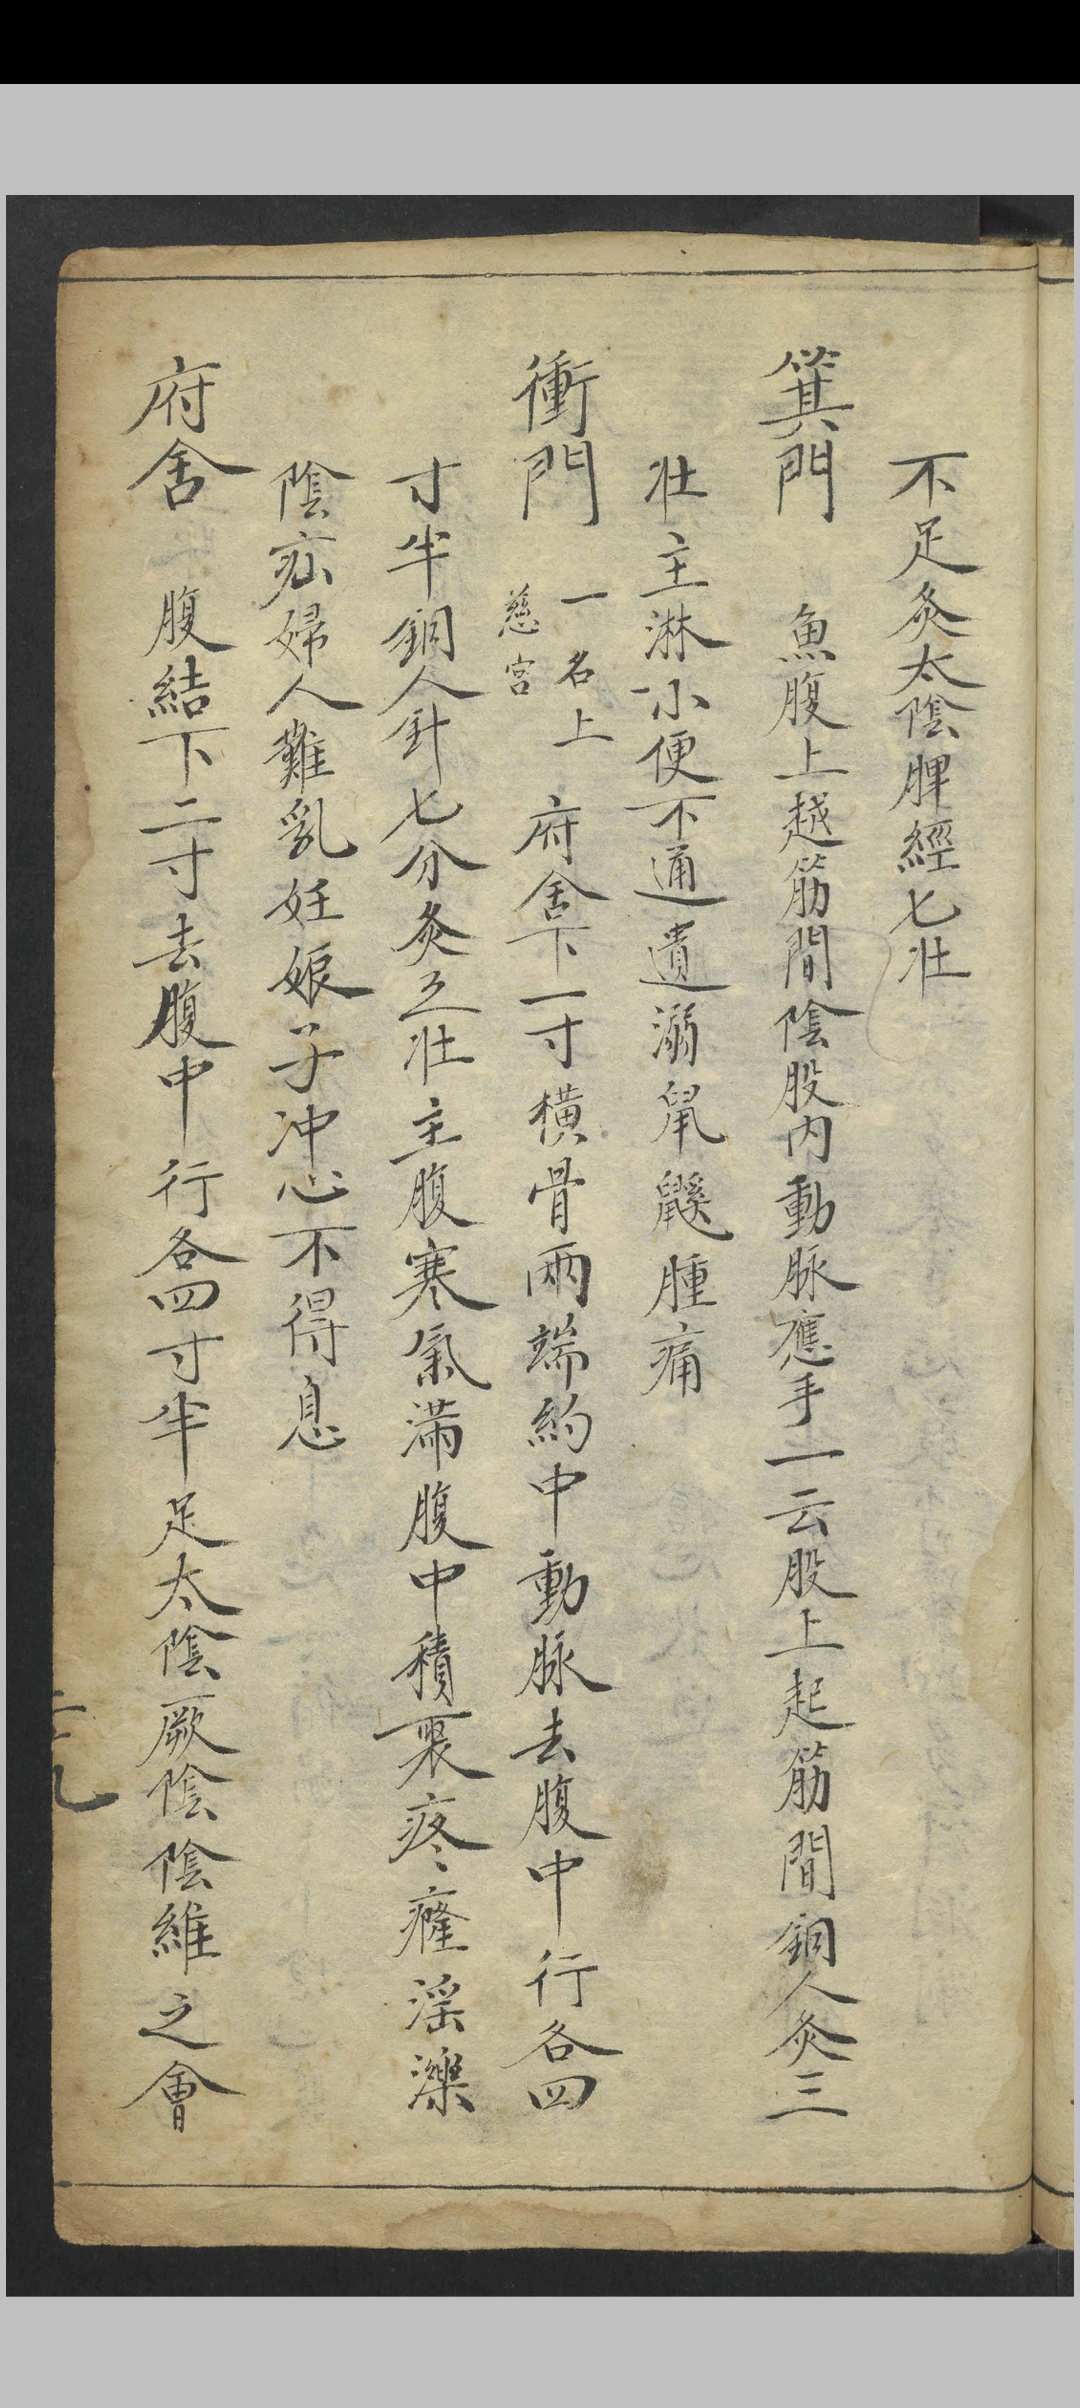 不足灸太陰脾經七壯
箕門 魚腹上越筋間陰股内動脉應手一云股上起筋間銅人灸三
壯主淋小便不通遺溺鼠鼷腫痛
衝門 一名上慈宮 府舍下一寸橫骨兩端約中動脉去腹中行各四
寸半銅人針七分灸五壯主腹寒氣滿腹中積聚疼癃淫濼
陰疝婦人難乳妊娠子冲心不得息
府舍 腹結下二寸去腹中行各四寸半足太陰厥陰陰維之會